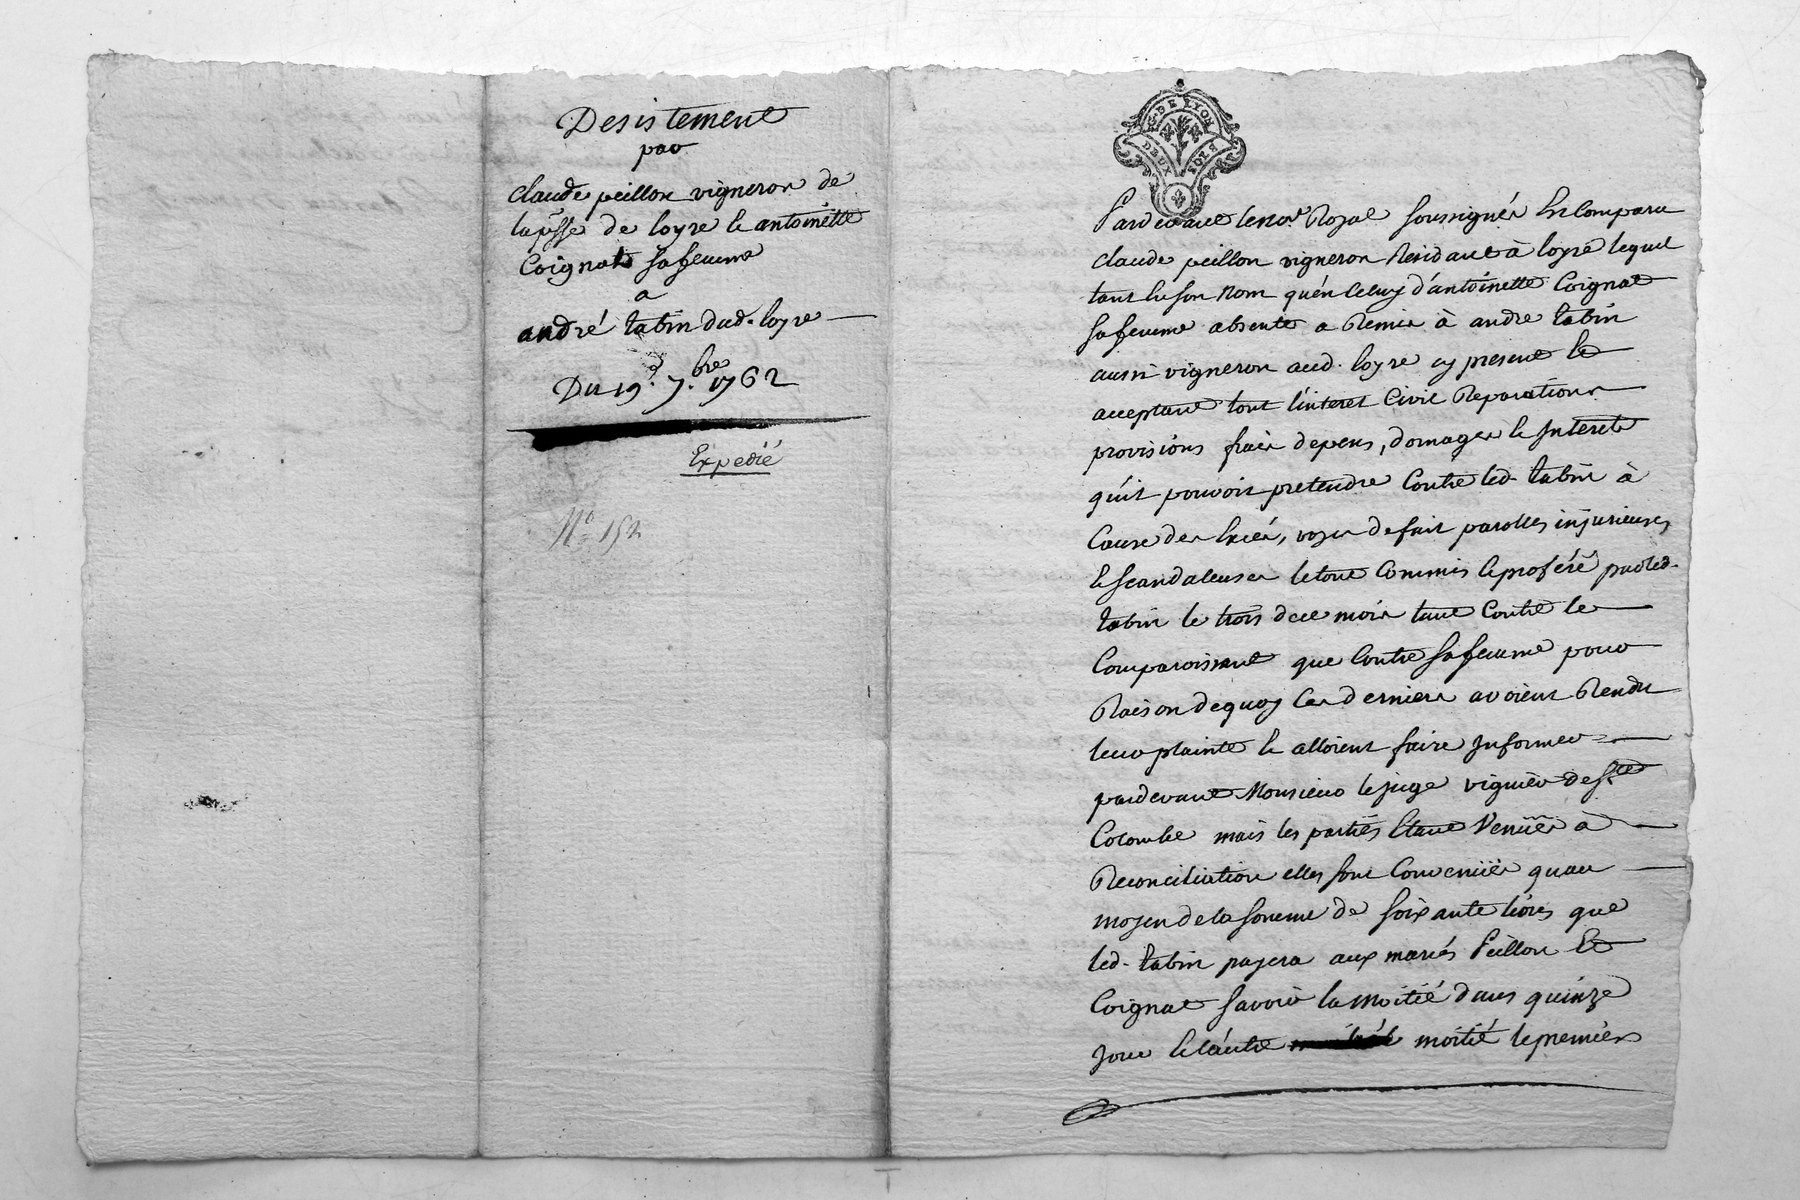 Desistement
par
claude peillon vigneron de
la psse de loyre & antoinette
Coignat sa femme
a
andré tabin dud. loyre
Du 19e. 7.bre 1762
Expedié
No 152
G. DE LYON
DEUX SOLS
Pardevant le nore. Royal soussigné est Comparu
claude peillon vigneron Residant à loyre lequel
tant en son nom qu'en celuy d'antoinette Coignat
sa femme absente a Remis à andre tabin
aussi vigneron aud. loyre cy present et
acceptant tout l'interet Civil Reparations
provisions frais depens, domages & Interets
qu'il pouvoit pretendre Contre led. tabin à
Cause des excés, voyes de fait parolles injurieuses
& scandaleuses le tout Commis & proféré par led.
tabin le trois de ce mois tant Contre le
Comparoissant que Contre sa femme pour
Raison de quoy Ces derniers avoient Rendu
leur plainte & alloient faire Informer
pardevant Monsieur le juge viguier de Ste
Colombe mais les parties Etant Venües à
Reconciliation elles sont Convenües qu'au
moyen de la somme de soixante livres que
led. tabin payera aux mariés Peillon Et
Coignat savoir la moitié dans quinze
jour & l'autre moitié le premier